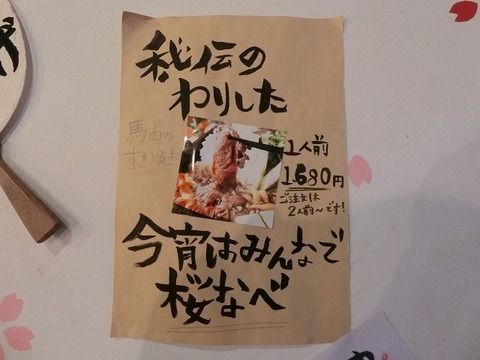 秘伝の
わりした
馬肉の
すき焼き
1人前
1,680円
ご注文は
2人前〜です!
今宵はみんなで
桜なべ